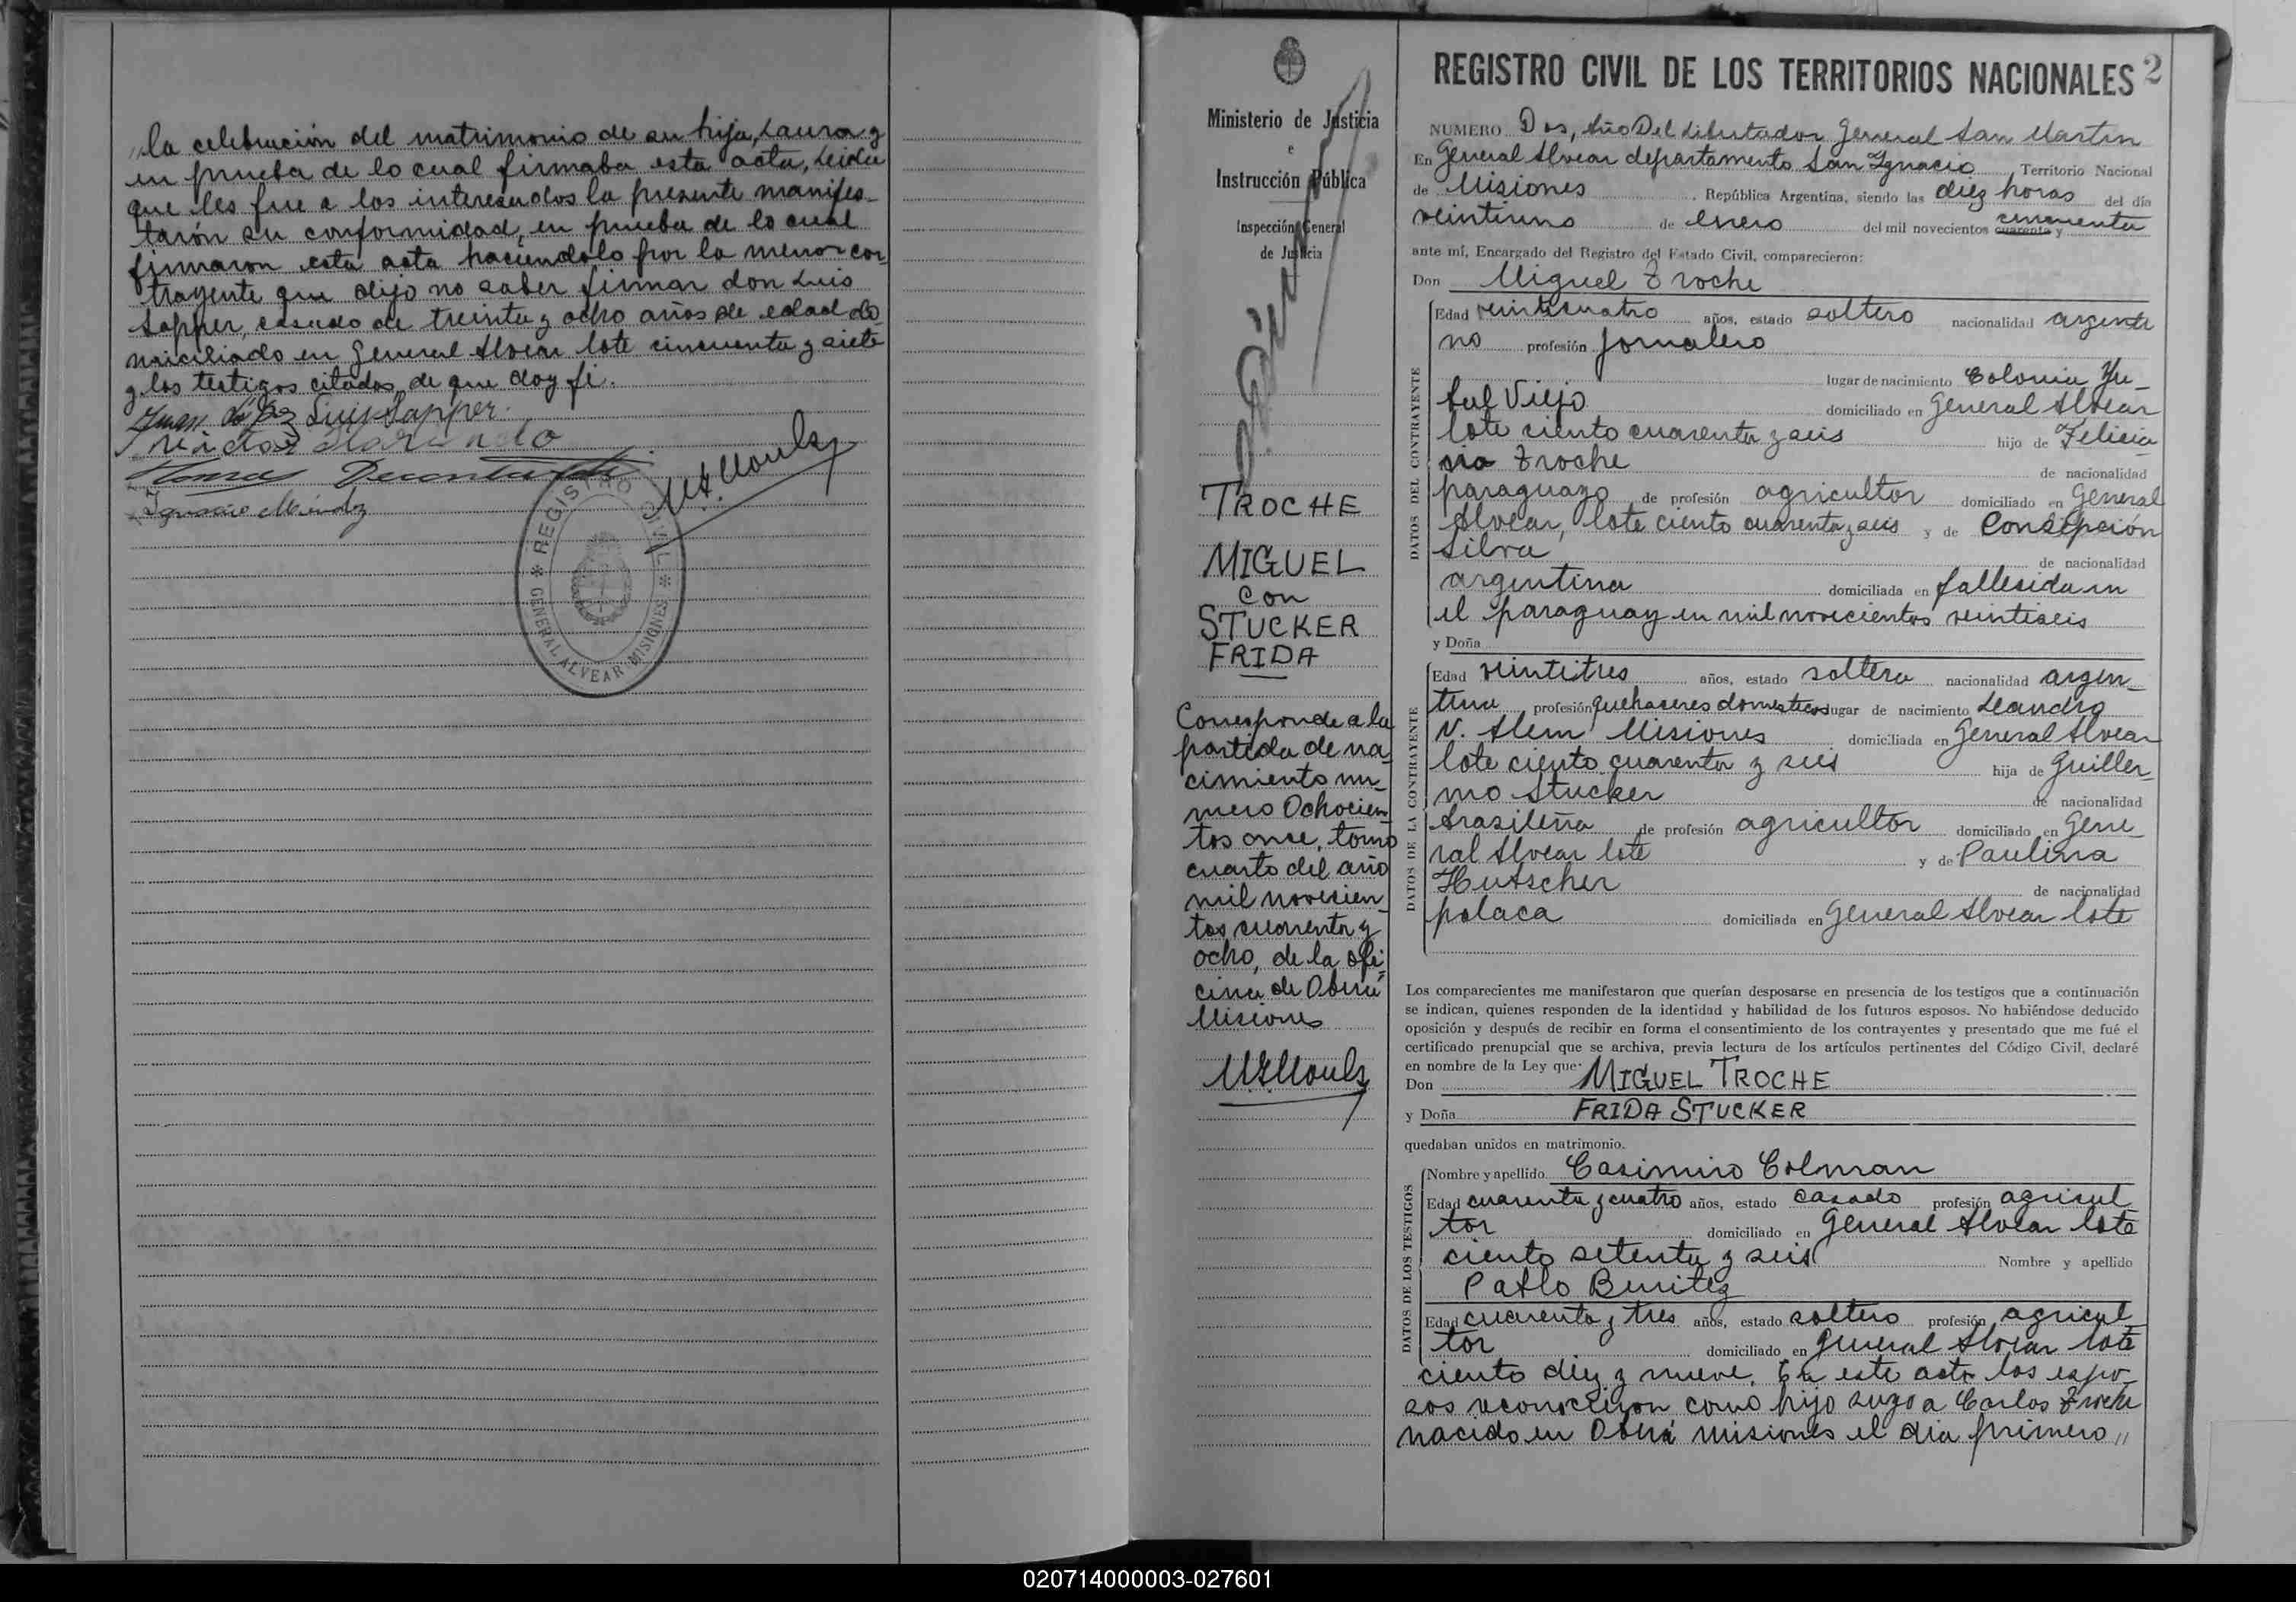 la celebración del matrimonio de su hija, Laura y
en prueba de lo cual firmaba esta acta, Leida
que les fue a los interesados la presente manifes-
tarón su conformidad, en prueba de lo cual
firmaron esta acta haciendolo por la menor con
trayente que dijo no saber firmar don Luis
Sapper, casado de treinta y ocho años de edad do
miciliado en General Alvear lote cincuenta y siete
y los testigos citados, de que doy fé.
Juan Luis Sapper.
Ignacio Mendez
REGISTRO CIVIL
GENERAL ALVEAR MISIONES
Ministerio de Justicia
e
Instrucción Pública
Inspección General
de Justicia
TROCHE
MIGUEL
con
STUCKER
FRIDA
Corresponde a la
partida de na
cimiento nu-
mero Ochocien
tos once, tomo
cuarto del año
mil novecien
tos cuarenta y
ocho, de la ofi
cina de Oberá
Misiones
REGISTRO CIVIL DE LOS TERRITORIOS NACIONALES 2
NUMERO Dos, Año Del Libertador General San Martin
En General Alvear departamento San Ignacio Territorio Nacional
de Misiones, República Argentina, siendo las diez horas del día
veintiuno de Enero del mil novecientos cuarenta y cincuenta
ante mí, Encargado del Registro del Estado Civil, comparecieron:
Don Miguel Troche
DATOS DEL CONTRAYENTE
Edad veinticuatro años, estado soltero nacionalidad argenti
no profesión Jornalero
lugar de nacimiento Colonia Yu-
tul Viejo domiciliado en General Alvear
lote ciento cuarenta y seis hijo de Felicia
no Troche de nacionalidad
paraguayo de profesión agricultor domiciliado en General
Alvear, lote ciento cuarenta y seis y de Consepción
Silva de nacionalidad
argentina domiciliada en fallesida en
el paraguay en mil novecientos veintiseis
y Doña
DATOS DE LA CONTRAYENTE
Edad veintitres años, estado soltera nacionalidad argen-
tina profesión quehaseres domesticos lugar de nacimiento Leandro
N. Alem Misiones domiciliada en General Alvear
lote ciento cuarenta y seis hija de Guiller-
mo Stucker de nacionalidad
brasileña de profesión agricultor domiciliado en Gene-
ral Alvear lote y de Paulina
Hutscher de nacionalidad
polaca domiciliada en General Alvear lote
Los comparecientes me manifestaron que querían desposarse en presencia de los testigos que a continuación
se indican, quienes responden de la identidad y habilidad de los futuros esposos. No habiéndose deducido
oposición y después de recibir en forma el consentimiento de los contrayentes y presentado que me fué el
certificado prenupcial que se archiva, previa lectura de los artículos pertinentes del Código Civil, declaré
en nombre de la Ley que:
Don MIGUEL TROCHE
y Doña FRIDA STUCKER
quedaban unidos en matrimonio.
DATOS DE LOS TESTIGOS
Nombre y apellido Casimiro Colman
Edad cuarenta y cuatro años, estado casado profesión agricul
tor domiciliado en General Alvear lote
ciento setenta y seis Nombre y apellido
Pablo Benitez
Edad cuarenta y tres años, estado soltero profesión agricul
tor domiciliado en General Alvear lote
ciento diez y nueve. En este acto los espo-
sos reconocieron como hijo suyo a Carlos Troche
nacido en Oberá misiones el dia primero,,
020714000003-027601